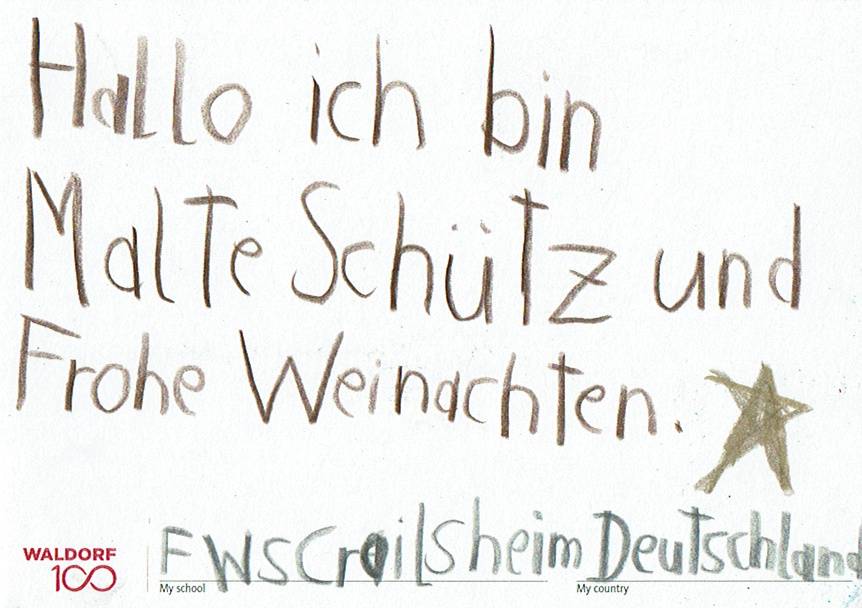 Hallo ich bin
Malte Schütz und
Frohe Weinachten.
WALDORF
100
FWS Crailsheim Deutschland
My school My country